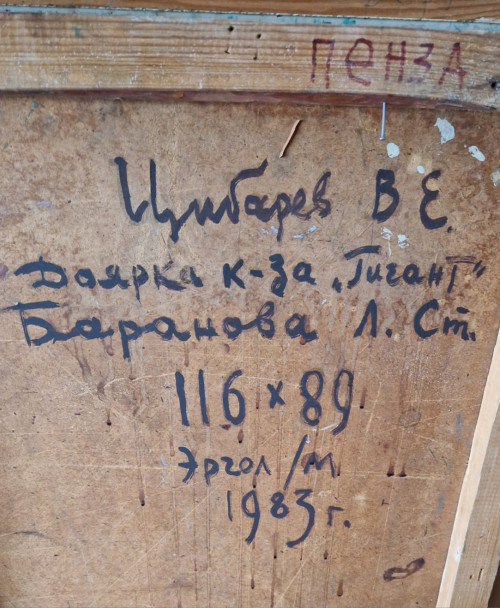 ПЕНЗА
Цибарев В Е.
Доярка к-за „Гигант"
Баранова Л. Ст.
116 х 89
Эргол/м
1983 г.